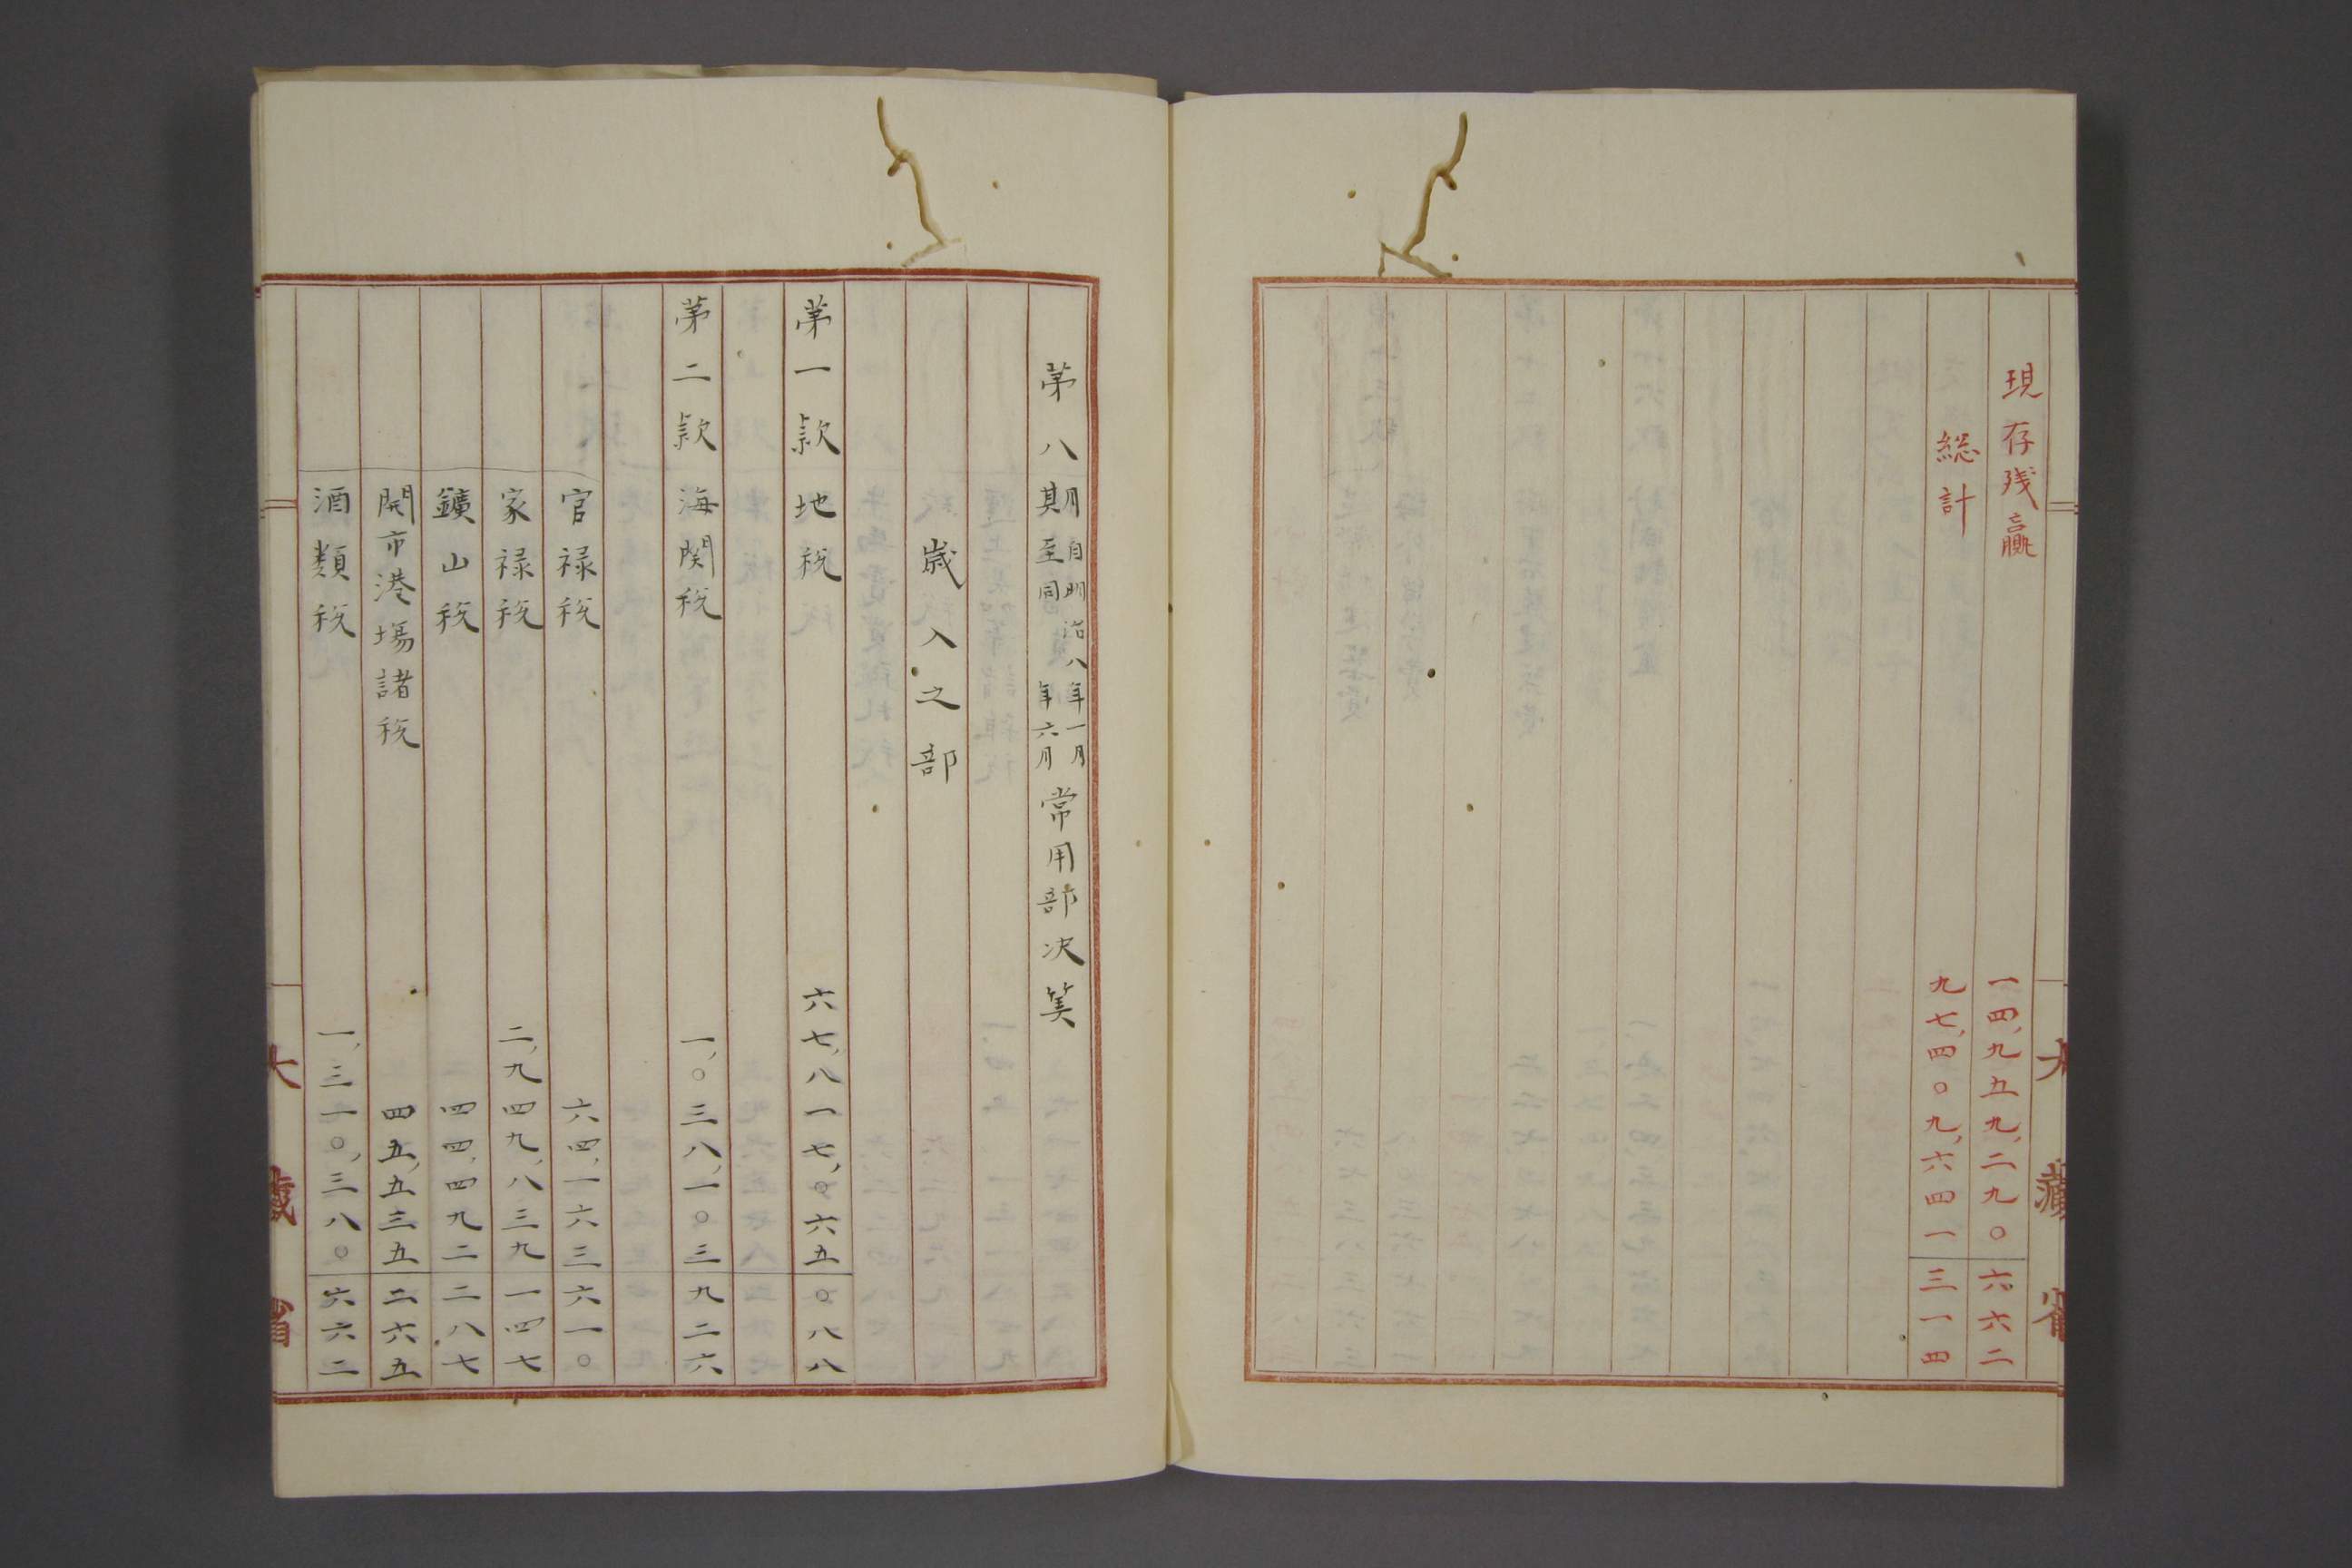 現存残贏 一四,九五九,二九〇 六六二
総計 九七,四〇九,六四一 三一四
大藏省
第八期 自明治八年一月 至同年六月 常用部決算
歳入之部
第一款 地税 六七,八一七,〇六五 〇八八
第二款 海関税 一,〇三八,一〇三 九二六
官禄税 六四,一六三 六一〇
家禄税 二,九四九,八三九 一四七
鑛山税 四四,四九二 二八七
開市港場諸税 四五,五三五 二六五
酒類税 一,三一〇,三八〇 六六二
大藏省